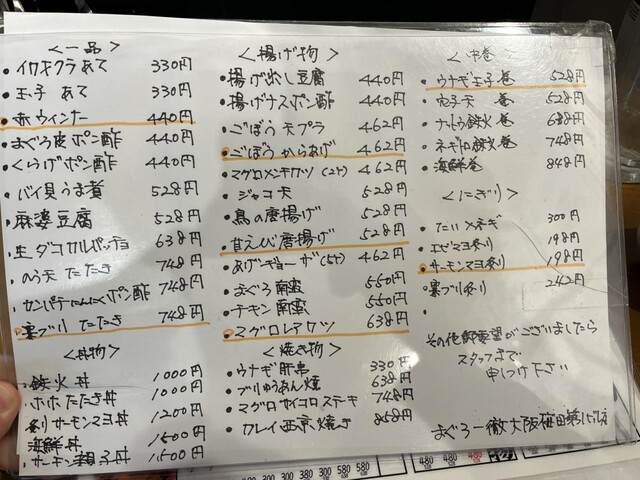 <一品>
・イワキクラ あて 330円
・玉子 あて 330円
・赤ウィンナー 440円
・まぐろ皮ポン酢 440円
・くらげポン酢 440円
・バイ貝うま煮 528円
・麻婆豆腐 528円
・生ダコカルパッチョ 638円
・のう天 たたき 748円
・サンパチにんにくポン酢 748円
・寒ブリ たたき 748円
<丼物>
・鉄火丼 1000円
・ホホたたき丼 1000円
・炙りサーモンマヨ丼 1200円
・海鮮丼 1500円
・サーモン親子丼 1500円
<揚げ物>
・揚げ出し豆腐 440円
・揚げナスポン酢 440円
・ごぼう天プラ 462円
・ごぼうからあげ 462円
・マグロメンチカツ(2ケ) 462円
・ジャコ天 528円
・鳥の唐揚げ 528円
・甘えび唐揚げ 528円
・あげギョーザ(5ケ) 462円
・まぐろ南蛮 550円
・チキン南蛮 550円
・マグロレアカツ 638円
<焼き物>
・ウナギ肝串 330円
・ブリゆうあん焼 638円
・マグロサイコロステーキ 748円
・カレイ西京焼き 858円
<中巻>
・ウナギ玉子巻 528円
・穴子天巻 528円
・ナットウ鉄火巻 638円
・ネギトロ鉄火巻 748円
・海鮮巻 848円
<にぎり>
・たい×ネギ 300円
・エビマヨ炙り 198円
・サーモンマヨ炙り 198円
・寒ブリ炙り 242円
・
その他御要望がございましたら
スタッフまで
申しつけ下さい
まぐろ一徹大阪梅田第1ビル店
300 380 300 580 580
480 480 480